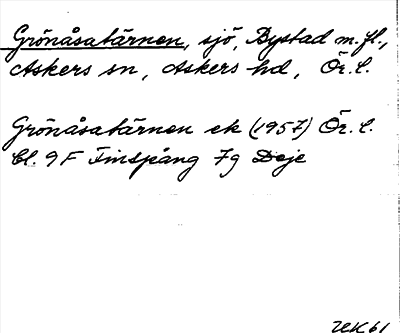 Grönåsatärnen, sjö, Bystad m.fl.,
Askers sn, Askers hd, Ör. l.
Grönåsatärnen ek (1957) Ör. l.
bl. 9F Finspång 7g Doje
UK 61